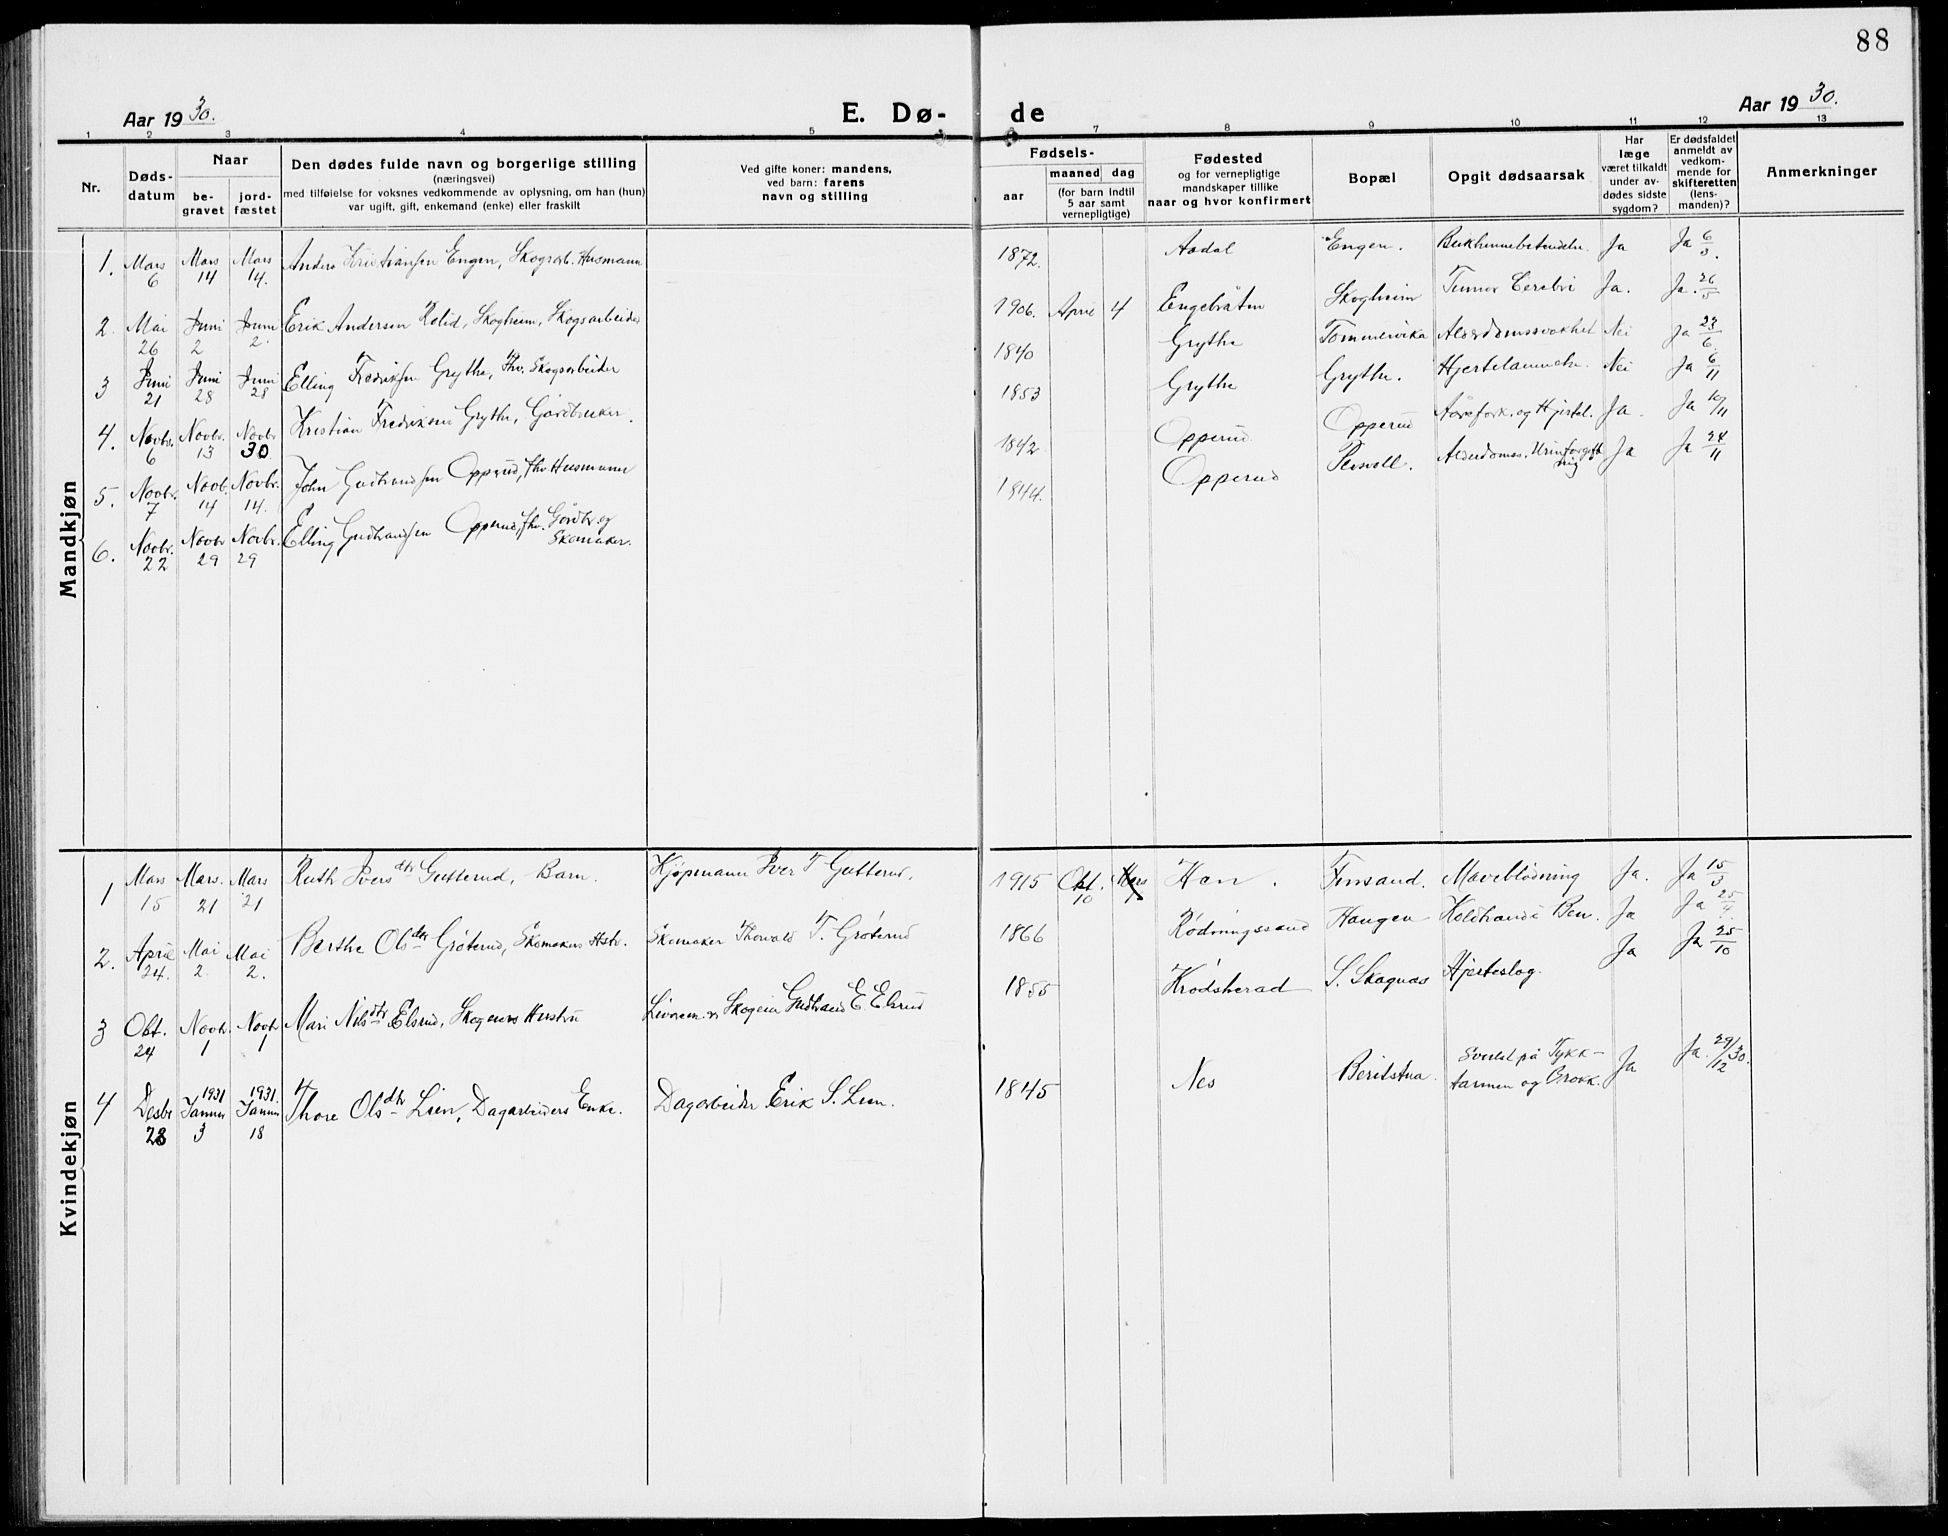 88
Aar 1930.
E. Dø-
de
Aar 1930.
1 2 3 4 5 6 7 8 9 10 11 12 13
Nr.
Døds-
datum
Naar
be-
gravet
jord-
fæstet
Den dødes fulde navn og borgerlige stilling
(næringsvei)
med tilføielse for voksnes vedkommende av oplysning, om han (hun)
var ugift, gift, enkemand (enke) eller fraskilt
Ved gifte koner: mandens,
ved barn: farens
navn og stilling
Fødsels-
aar
maaned dag
(for barn indtil
5 aar samt
vernepligtige)
Fødested
og for vernepligtige
mandskaper tillike
naar og hvor konfirmert
Bopæl
Opgit dødsaarsak
Har
læge
været tilkaldt
under av-
dødes sidste
sygdom?
Er dødsfaldet
anmeldt av
vedkom-
mende for
skifteretten
(lens-
manden)?
Anmerkninger
Mandkjøn
1. Mars 6 Mars 14 Mars 14. Anders Kristiansen Engen, Skogsarb. Husmann 1872. Aadal Engen. Bukhinnebetendelse Ja Ja 6/3.
2. Mai 26 Juni 2 Juni 2. Erik Andersen Rolid, Skogheim, Skogsarbeider 1906. April 4 Engebråten Skogheim Tumor Cerebri Ja. Ja. 26/5
3 Juni 21 Juni 28 Juni 28 Elling Fredriksen Grythe, fhv. Skogsarbeider 1840 Grythe Tømmervika Alderdomssvakhet Nei Ja 23/6.
4. Novbr. 6 Novbr. 13 Novbr 30 Kristian Fredriksen Grythe, Gårdbruker. 1853 Grythe Grythe. Hjertelammelse. Nei Ja 6/11
5. Novbr. 7 Novb. 14 Novbr. 14. John Gudbrandsen Opperud, fhv. Husmann 1842 Opperud Opperud Årefork. og Hjertel. Ja. Ja 10/11
6. Novbr. 22 Novbr 29 Novbr. 29 Elling Gudbrandsen Opperud, fhv. Gårdbr og Skomaker. 1844. Opperud Alderdomss. Urinforgiftning Ja Ja 24/11
Kvindekjøn
1 Mars 15 Mars. 21 Mars 21 Ruth Iversdtr Gutterud, Barn. Kjøpmann Iver T Gutterud. 1915 Okt. 10 Hen. Finsand. Maveblødning Ja. Ja 15/3
2. April 24. Mai 2 Mai 2. Berthe Olsdtr Grøterud, Skomakers Hstr. Skomaker Thorvald T. Grøterud 1866 Rødningssand Haugen Koldbrand i Ben. Ja Ja 25/4.
3 Okt. 24 Novbr. 1 Novbr 1 Mari Nilsdtr Elsrud, Skogeiers Hustru Skogeier Gudbrand E. Elsrud 1855 Krødsherad S. Skagnæs Hjerteslag. Ja Ja 25/10
4 Desbr 28 1931 Januar 3 1931. Januar 18 Thore Olsdtr Lien, Dagarbeiders Enke. Dagarbeider Erik S. Lien. 1845 Nes Beritstua. Svulst på Tykk-
tarmen og Brokk. Ja Ja. 29/12 30.